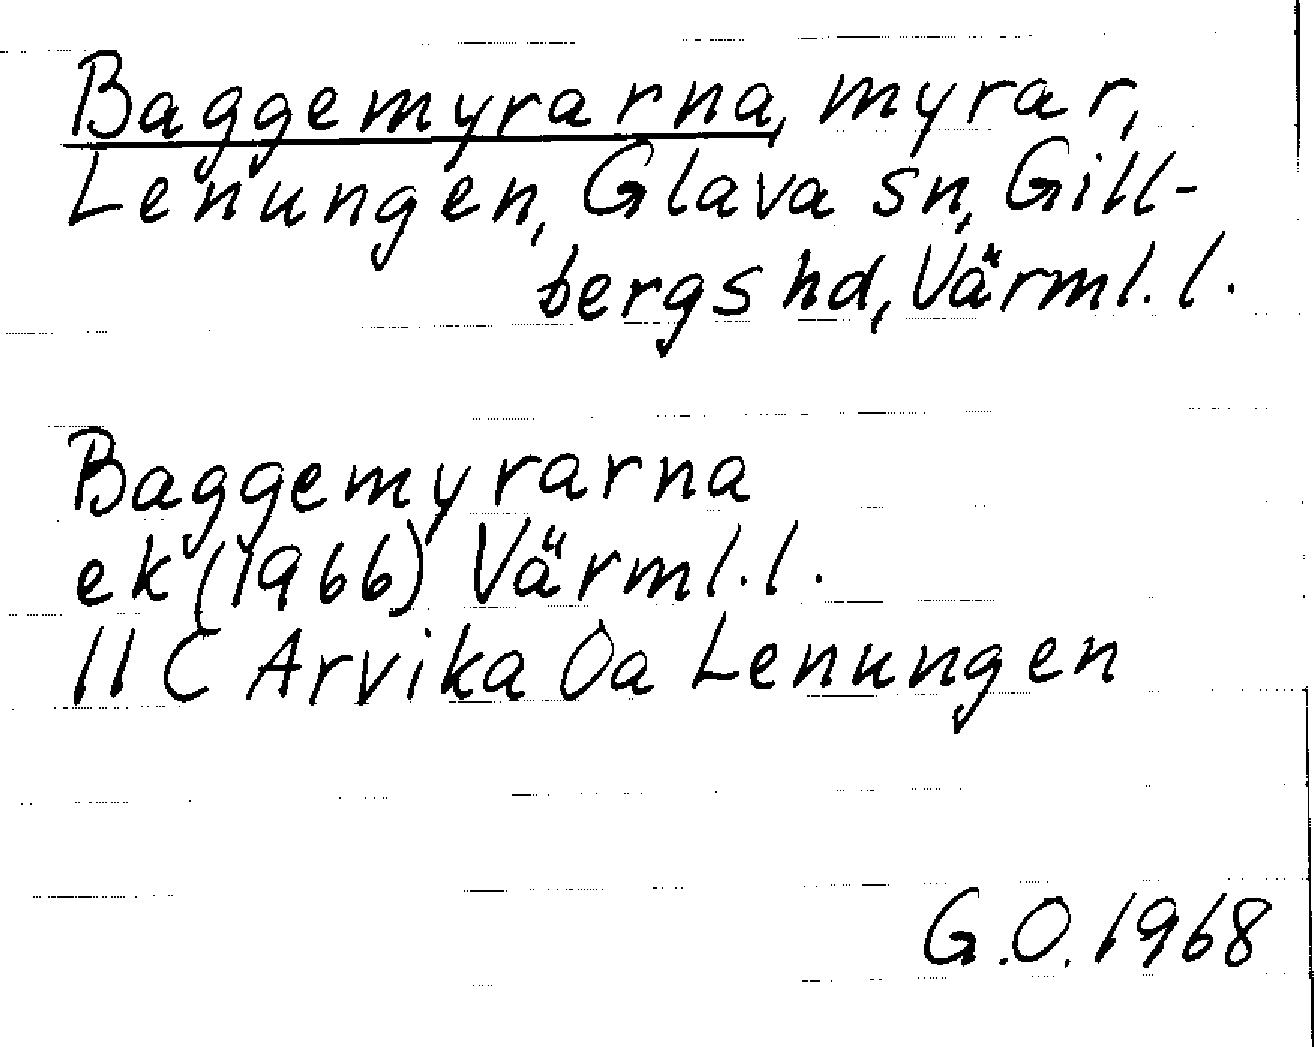 Baggemyrarna, myrar,
Lenungen, Glava sn, Gill-
bergs hd, Värml. l.
Baggemyrarna
ek (1966) Värml. l.
11 C Arvika 0a Lenungen
G.O. 1968